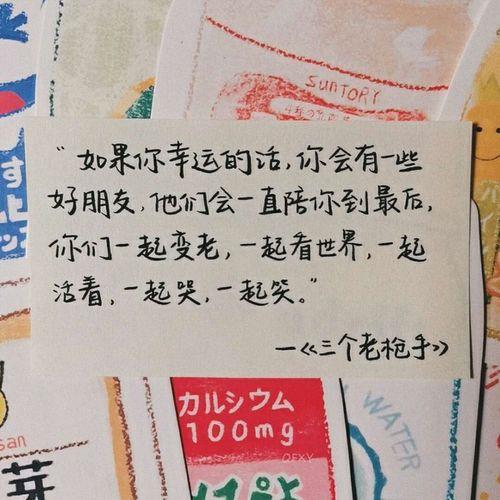 SUNTORY
“如果你幸运的话,你会有一些
好朋友,他们会一直陪你到最后,
你们一起变老,一起看世界,一起
活着,一起哭,一起笑。”
—《三个老枪手》
カルシウム
100mg
WATER
san
芽
OFXY